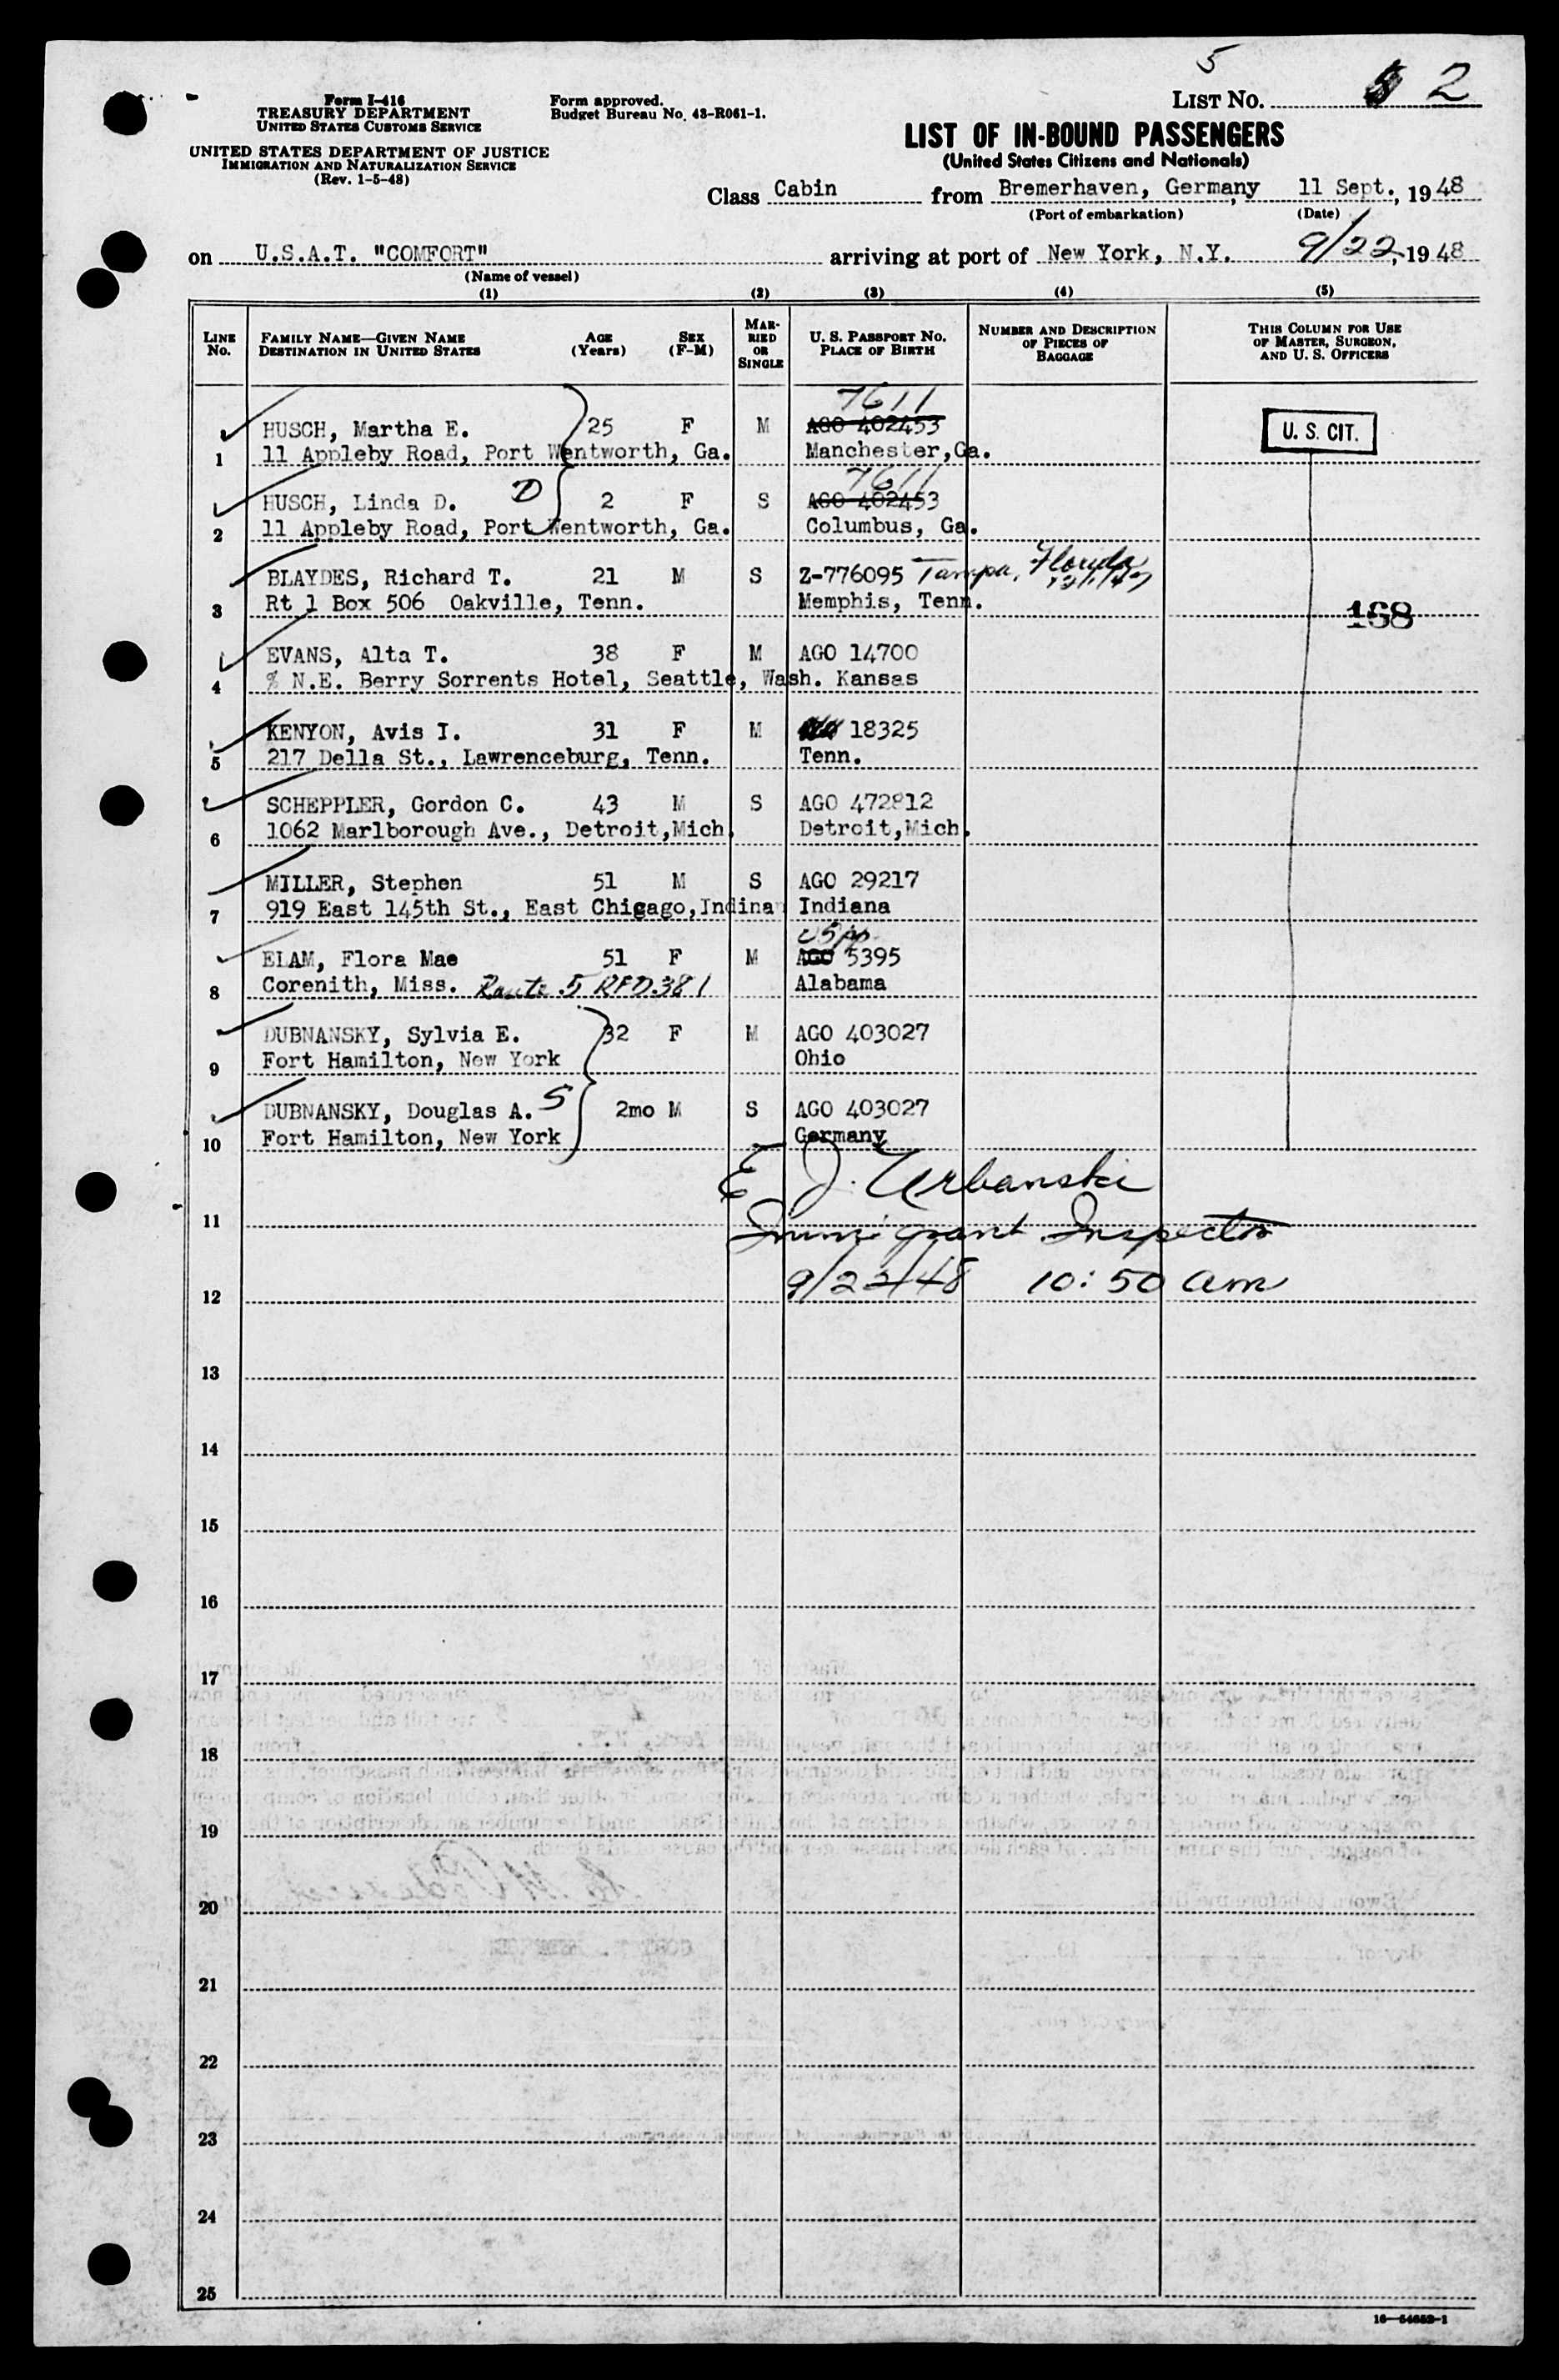 5
LIST No. 2
Form I-416
TREASURY DEPARTMENT
UNITED STATES CUSTOMS SERVICE
Form approved.
Budget Bureau No. 43-R061-1.
UNITED STATES DEPARTMENT OF JUSTICE
IMMIGRATION AND NATURALIZATION SERVICE
(Rev. 1-5-48)
LIST OF IN-BOUND PASSENGERS
(United States Citizens and Nationals)
Class Cabin from Bremerhaven, Germany, 11 Sept., 1948
(Port of embarkation) (Date)
on U.S.A.T. "COMFORT" arriving at port of New York, N.Y. 9/22, 1948
(Name of vessel)
(1) (2) (3) (4) (5)
LINE No. FAMILY NAME—GIVEN NAME DESTINATION IN UNITED STATES AGE (Years) SEX (F-M) MAR-RIED OR SINGLE U. S. PASSPORT NO. PLACE OF BIRTH NUMBER AND DESCRIPTION OF PIECES OF BAGGAGE THIS COLUMN FOR USE OF MASTER, SURGEON, AND U. S. OFFICERS
7611
HUSCH, Martha E. 25 F M AGO 402453 U. S. CIT.
1 11 Appleby Road, Port Wentworth, Ga. Manchester,Ga.
7611
HUSCH, Linda D. D 2 F S AGO 402453
2 11 Appleby Road, Port Wentworth, Ga. Columbus, Ga.
BLAYDES, Richard T. 21 M S Z-776095 Tampa, Florida 12/1/47
3 Rt 1 Box 506 Oakville, Tenn. Memphis, Tenn. 168
EVANS, Alta T. 38 F M AGO 14700
4 % N.E. Berry Sorrents Hotel, Seattle, Wash. Kansas
KENYON, Avis I. 31 F M 18325
5 217 Della St., Lawrenceburg, Tenn. Tenn.
SCHEPPLER, Gordon C. 43 M S AGO 472812
6 1062 Marlborough Ave., Detroit,Mich. Detroit,Mich.
MILLER, Stephen 51 M S AGO 29217
7 919 East 145th St., East Chigago,Indinan Indiana
USpp
ELAM, Flora Mae 51 F M AGO 5395
8 Corenith, Miss. Route 5 RFD 381 Alabama
DUBNANSKY, Sylvia E. 32 F M AGO 403027
9 Fort Hamilton, New York Ohio
DUBNANSKY, Douglas A. S 2mo M S AGO 403027
10 Fort Hamilton, New York Germany
E J. Urbanski
11 Immigrant Inspector
12 9/22/48 10:50 am
13
14
15
16
17
18
19
20
21
22
23
24
25